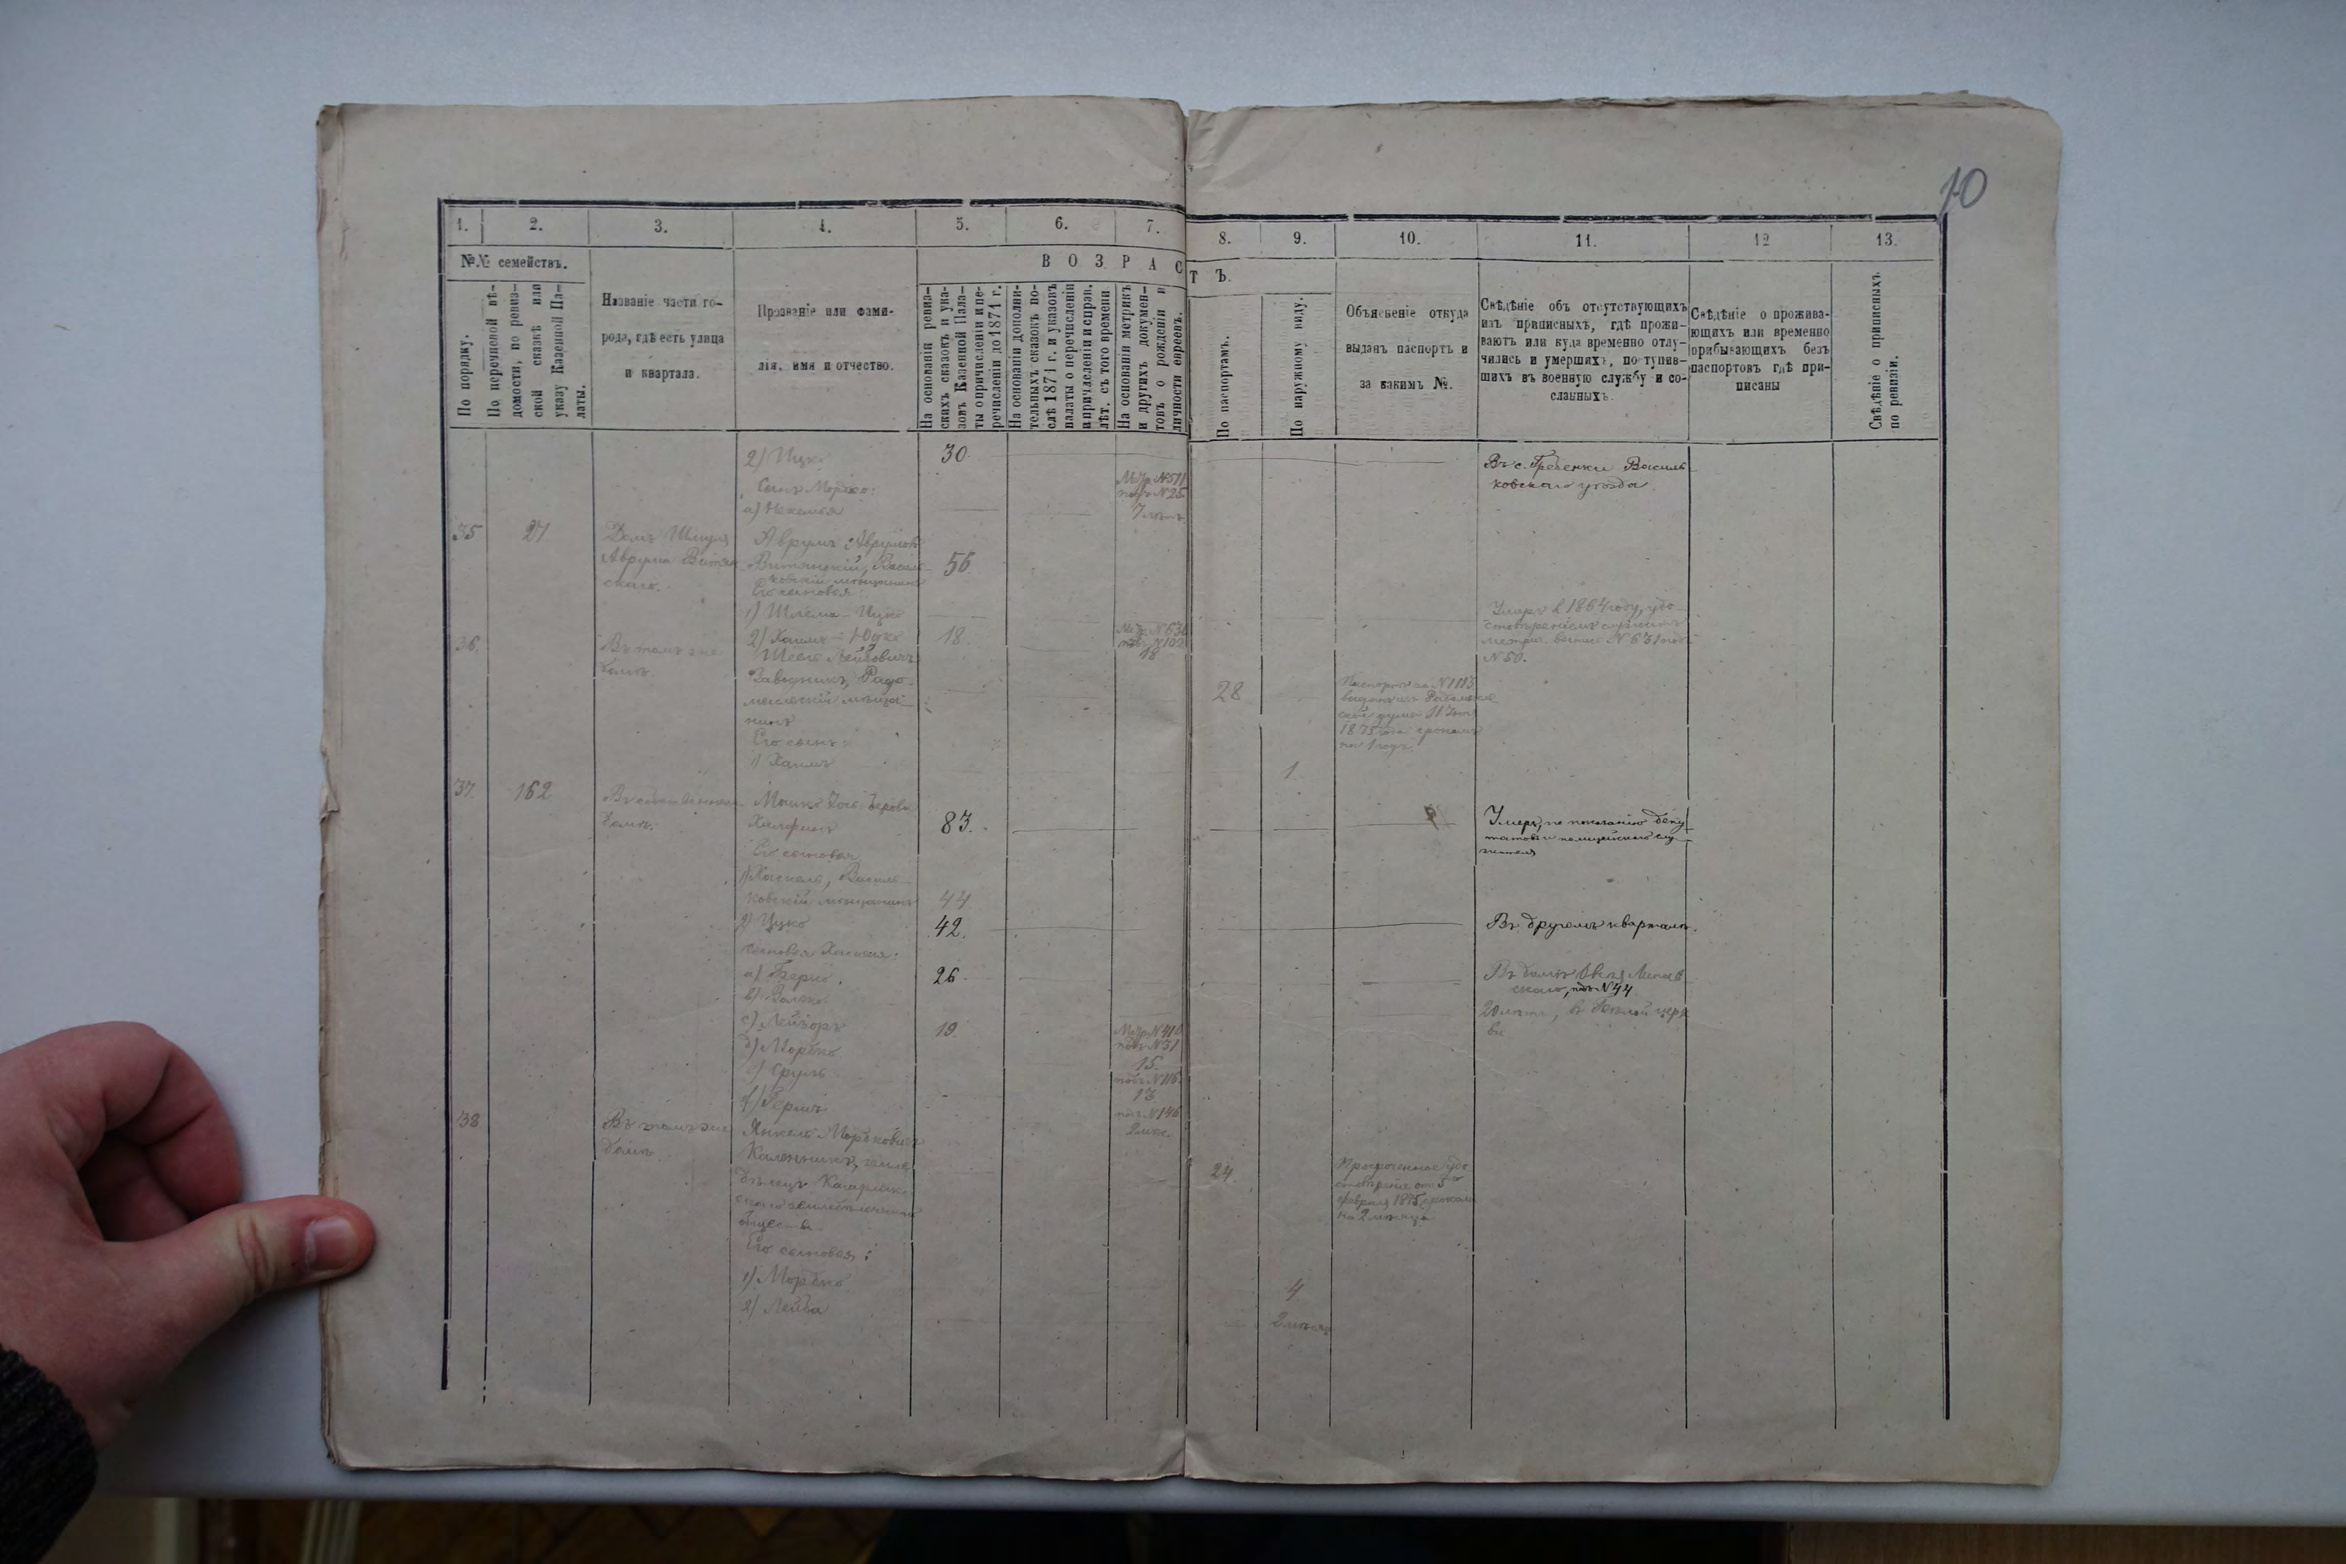 10
1.
2.
3.
4.
5.
6.
7.
8.
9.
10.
11.
12
13.
№№ семействъ.
ВОЗРАСТЪ.
По порядку.
По перечневой вѣ-
домости, по ревиз-
ской сказкѣ или
указу Казенной Па-
латы.
Названіе части го-
рода, гдѣ есть улица
и квартала.
Прозваніе или фами-
лія, имя и отчество.
На основаніи ревиз-
скихъ сказокъ и ука-
зовъ Казенной Пала-
ты о причисленіи и пе-
речисленіи до 1871 г.
На основаніи дополни-
тельныхъ сказокъ по-
слѣ 1871 г. и указовъ
палаты о перечисленіи
и причисленіи и справ.
лѣт. съ того времени
На основаніи метрикъ
и другихъ докумен-
товъ о рожденіи и
личности евреевъ.
По паспортамъ.
По наружному виду.
Объясненіе откуда
выданъ паспортъ и
за какимъ №.
Свѣдѣніе объ отсутствующихъ
изъ приписныхъ, гдѣ прожи-
ваютъ или куда временно отлу-
чились и умершихъ, поступив-
шихъ въ военную службу и со-
сланныхъ.
Свѣдѣніе о прожива-
ющихъ или временно
прибывающихъ безъ
паспортовъ гдѣ при-
писаны
Свѣдѣніе о приписныхъ
по ревизіи.
2) Ицко
30
Въ с. Гребенки Василь-
ковскаго уѣзда
Сынъ Мордко:
Метр №511
подъ №25
7 лѣтъ
35
27
Домъ Шмуля
Аврума Витян-
скаго.
Аврумъ Аврумовъ
Витянскій, Василь-
ковскій мѣщанинъ
56
Его сыновья:
1) Шлема-Ицко
Умеръ въ 1864 году, удо-
метрич. выпис. №631 подъ
№50.
2) Хаимъ-Юдко
18
подъ №102
18
36.
Въ томъ же
домѣ
Лейбовичъ
Заводникъ, Радо-
мысльскій мѣща-
нинъ
28
Паспортъ за №1113
выданъ изъ Радомысль-
ской думы
1875 года срокомъ
на 1 годъ.
Его сынъ:
1) Хаимъ
1
37.
162
Въ собственномъ
домѣ.
Мошко
83.
Умеръ, по показанію депу-
татовъ и полицейскаго слу-
жителя
Его сыновья
1) Хаскель, Василь-
ковскій мѣщанинъ
44
2) Ицко
42.
Въ другомъ кварталѣ.
Сыновья Хаскеля:
а) Берко.
26
Въ домѣ
скаго, подъ №44
в) Волько
20 лѣтъ, въ Бѣлой Церк-
ви
с) Лейзоръ
19
Метр №410
подъ №31
д) Мордко
15.
Сруль
подъ №116
13
f) Гершъ
подъ №146
2 мѣс.
38
Въ томъ же
домѣ
Янкель Мордковичъ
Каленникъ, земле-
дѣлецъ Кагарлык-
скаго земледѣльческаго
общества
24
Просроченное удо-
стовѣреніе отъ 5
февраля 1875, срокомъ
на 2 мѣсяца
Его сыновья:
1) Мордко
4
2) Лейба
2 мѣсяц